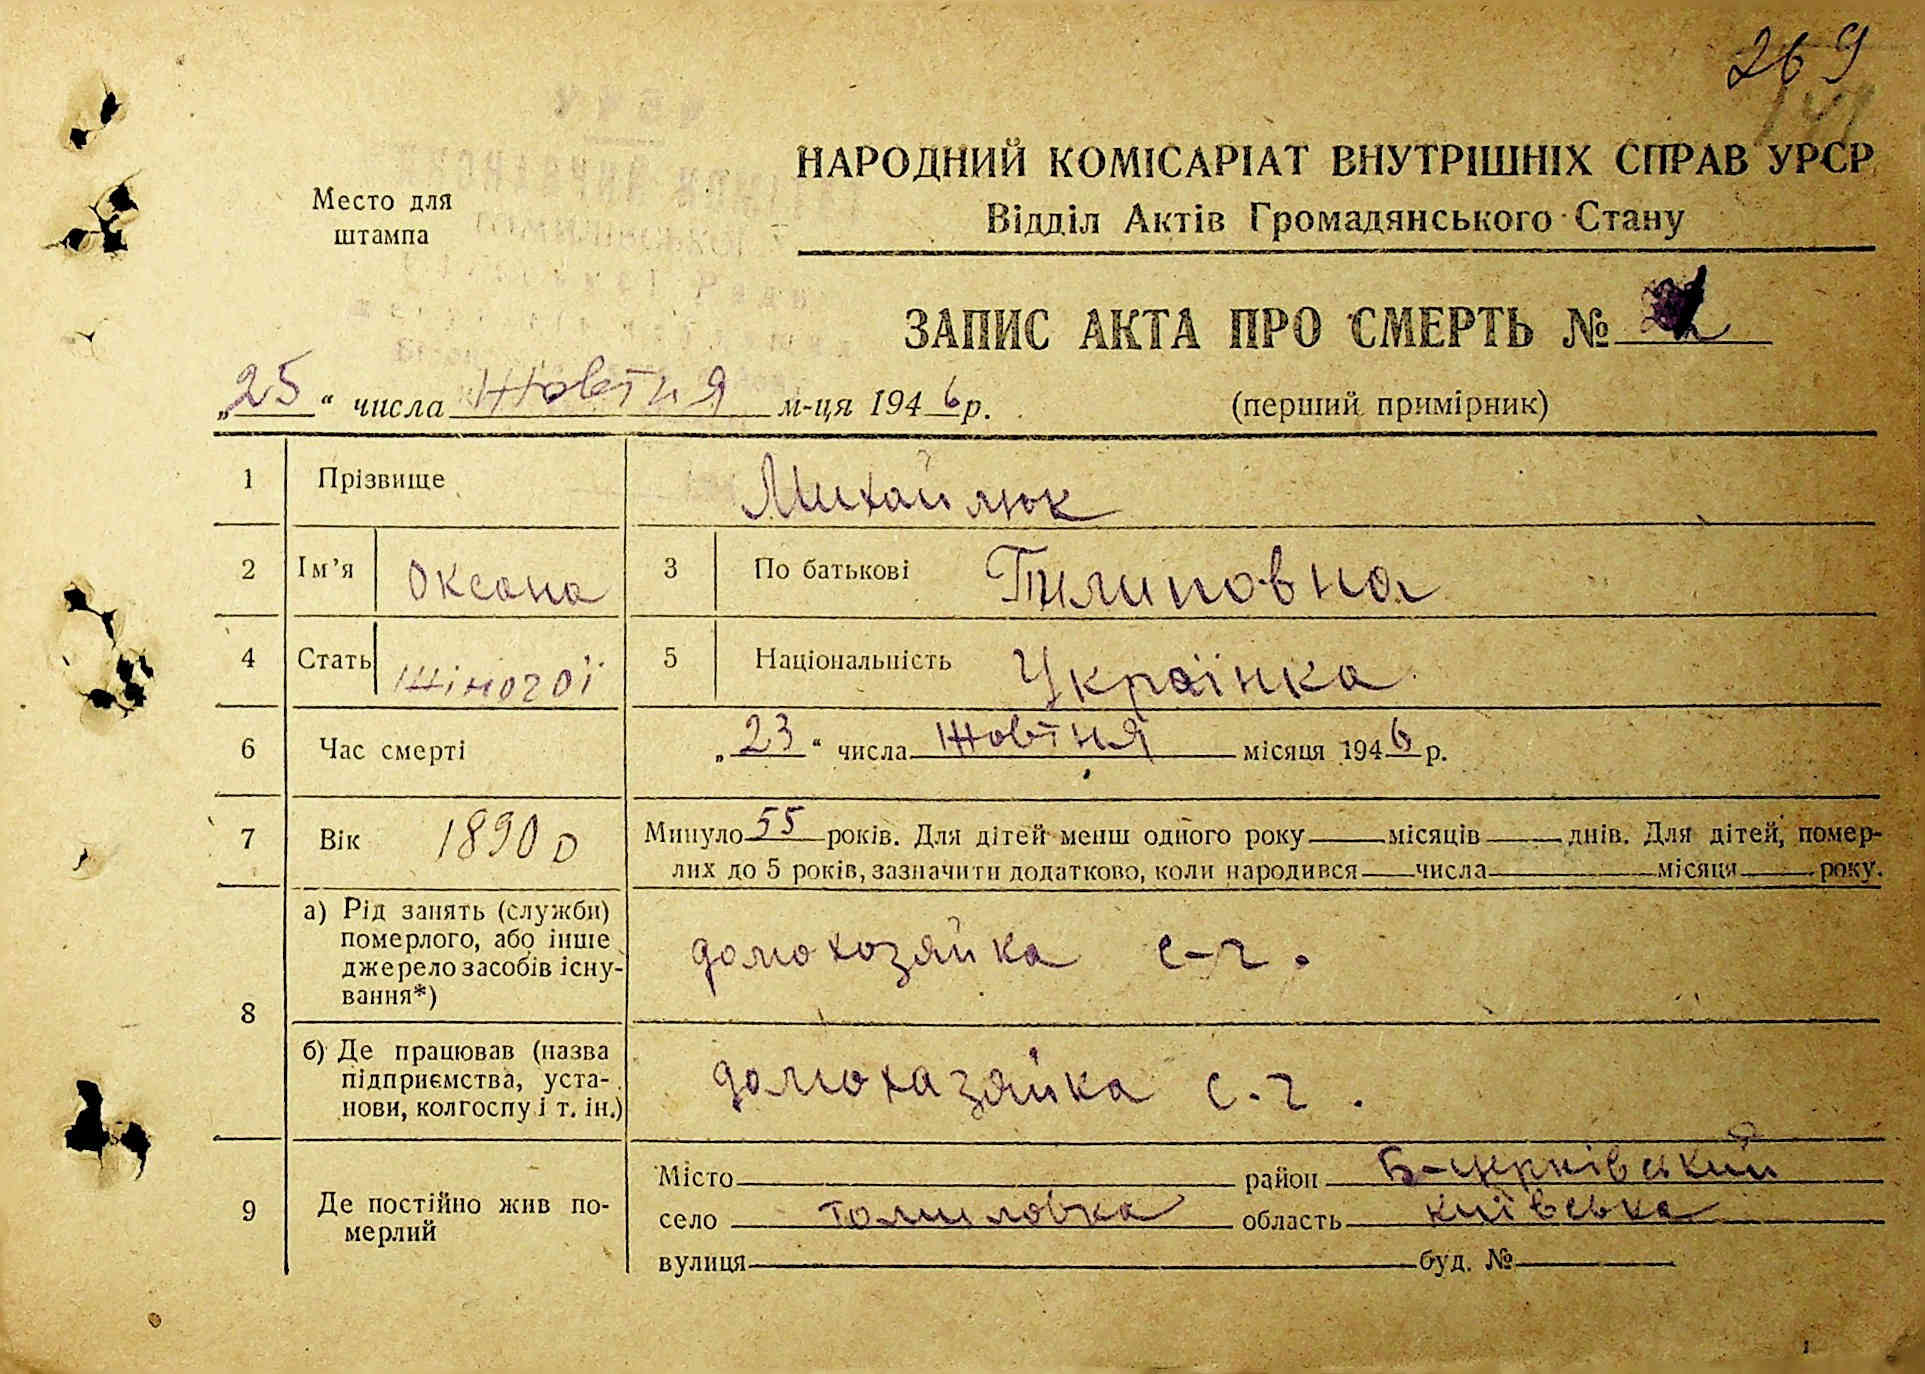 269
НАРОДНИЙ КОМІСАРІАТ ВНУТРІШНІХ СПРАВ УРСР
Место для
штампа
Відділ Актів Громадянського Стану
ЗАПИС АКТА ПРО СМЕРТЬ №
„25“ числа Жовтня м-ця 1946 р.
(перший примірник)
1 Прізвище Михайлюк
2 Ім’я Оксана 3 По батькові Пилиповна
4 Стать Жіночої 5 Національність Українка
6 Час смерті „23“ числа Жовтня місяця 1946 р.
7 Вік 1890 р Минуло 55 років. Для дітей менш одного року місяців днів. Для дітей, помер-
лих до 5 років, зазначити додатково, коли народився числа місяця року.
8 а) Рід занять (служби)
померлого, або інше
джерело засобів існу-
вання*)
домохозяйка с-г.
б) Де працював (назва
підприємства, уста-
нови, колгоспу і т. ін.)
домохазяйка с.-г.
9 Де постійно жив по-
мерлий
Місто район Б-церківський
село Томиловка область київська
вулиця буд. №